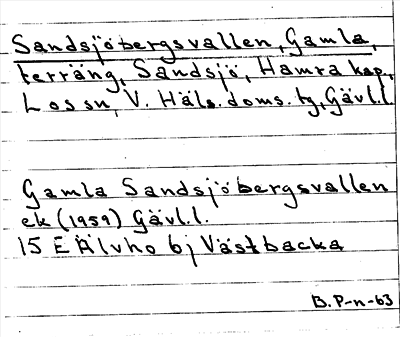 Sandsjöbergsvallen, Gamla,
terräng, Sandsjö, Hamra kap,
Los sn, V. Häls. doms. tg, Gävl.l.
Gamla Sandsjöbergsvallen
ek (1959) Gävl.l.
15 E Älvho 6j Västbacka
B. P-n-63